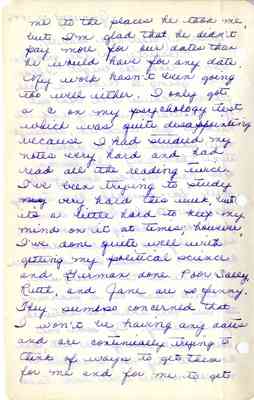 me to the places he took me,
but I'm glad that he didn't
pay more for our dates than
he would have for any date.
My work hasn't been going
too well either. I only got
a C on my psychology test
which was quite disappointing
because I had studied my
notes very hard and had
read all the reading twice.
I've been trying to study
very hard this week, but
its a little hard to keep my
mind on it at times; however,
I've done quite well with
getting my political science
and German done. Poor Sally,
Ruth, and Jane are so funny.
They seem so concerned that
I won't be having any dates
and are continually trying to
think of ways to get them
for me and for me to get